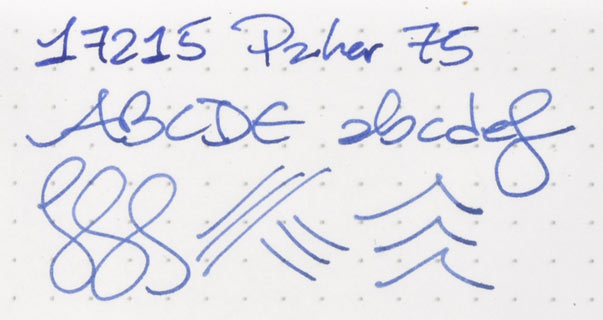 17215 Parker 75
ABCDE abcdef